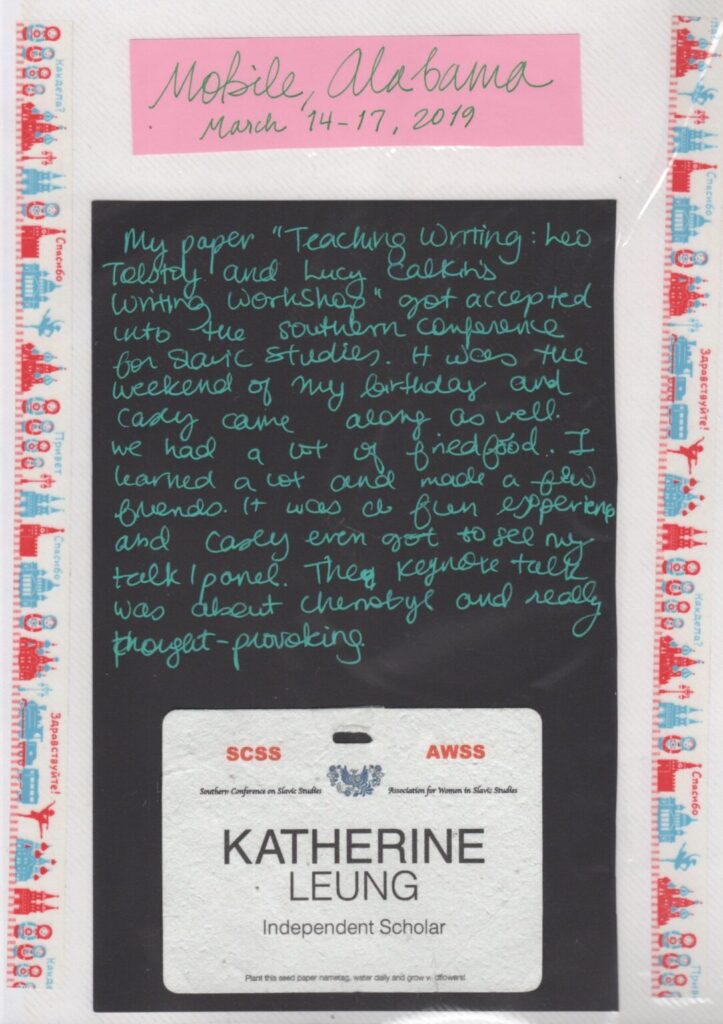 Mobile, Alabama
March 14-17, 2019
My paper "Teaching Writing: Leo
Tolstoy and Lucy Calkin's
Writing Workshop" got accepted
into the southern conference
for Slavic Studies. It was the
weekend of my birthday and
Casey came along as well.
we had a lot of fried food. I
learned a lot and made a few
friends. It was a fun experience
and Casey even got to see my
talk/panel. The Keynote talk
was about Chernobyl and really
thought-provoking.
SCSS AWSS
Southern Conference on Slavic Studies Association for Women in Slavic Studies
KATHERINE
LEUNG
Independent Scholar
Plant this seed paper nametag, water daily and grow wildflowers!
Какдела?
Спасибо
Привет
Спасибо
Здравствуйте!
Какдела?
Спасибо
Здравствуйте!
Привет
Спасибо
Какдела?
Спасибо